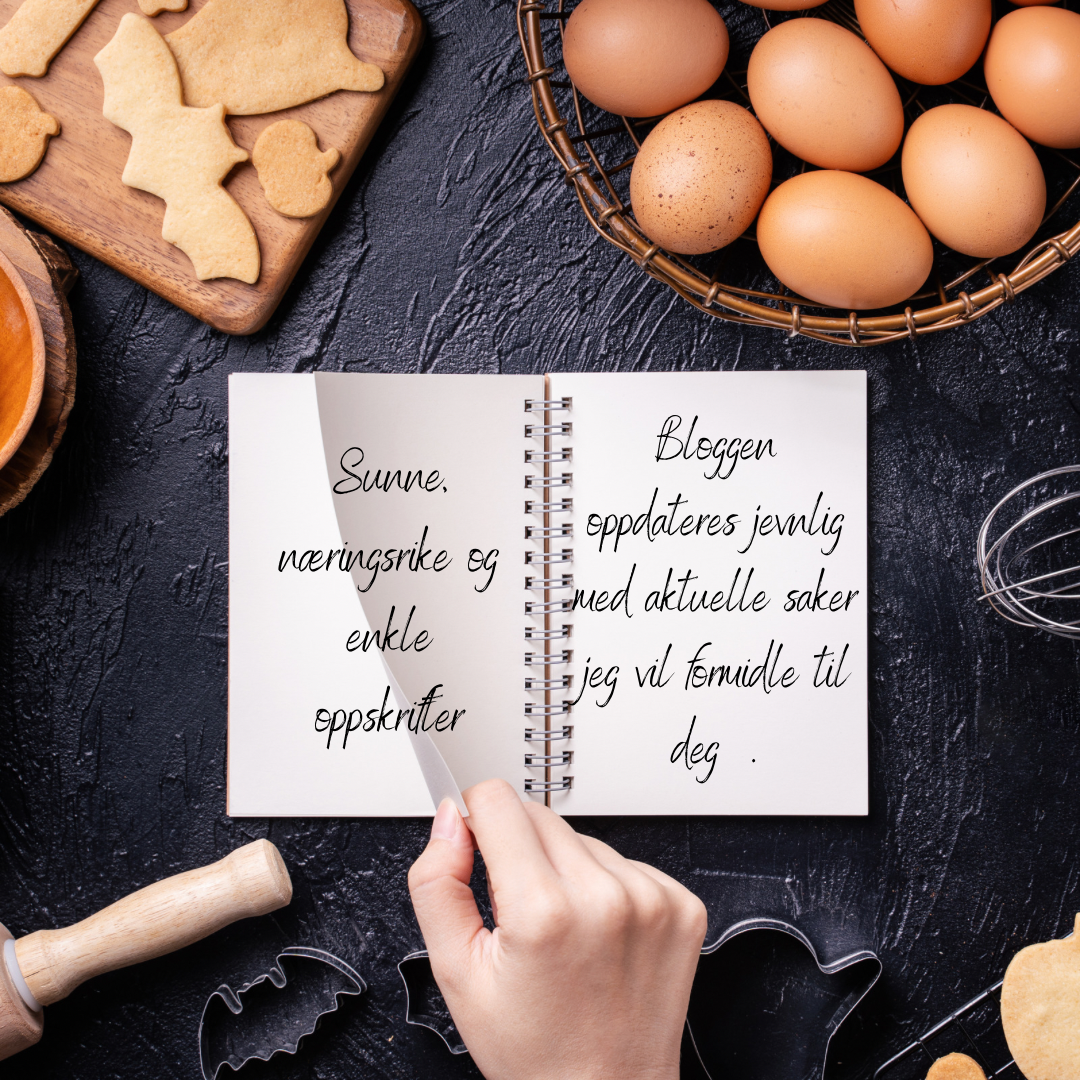 Sunne,
næringsrike og
enkle
oppskrifter
Bloggen
oppdateres jevnlig
med aktuelle saker
jeg vil formidle til
deg .